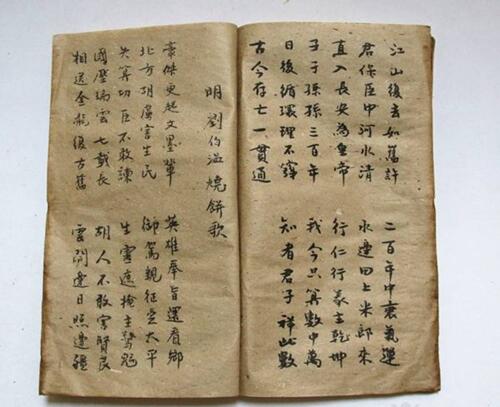 江山後去如舊許 二百年中衰氣運
君保臣中河水清 水邊田上米郎來
直入長安為皇帝 行仁行義立乾坤
子子孫孫三百年 我今只算數中萬
日後循環理不窮 知者君子祥此數
古今存亡一貫通
明 劉伯溫燒餅歌
豪傑更起文墨輩 英雄奉旨還看鄉
北方胡虜害生民 御駕親征定太平
失算功臣不敢諫 生靈遮掩主驚魁
國壓瑞雲七載長 胡人不敢害賢良
相送金龍復古舊 雲閃邊日照邊疆